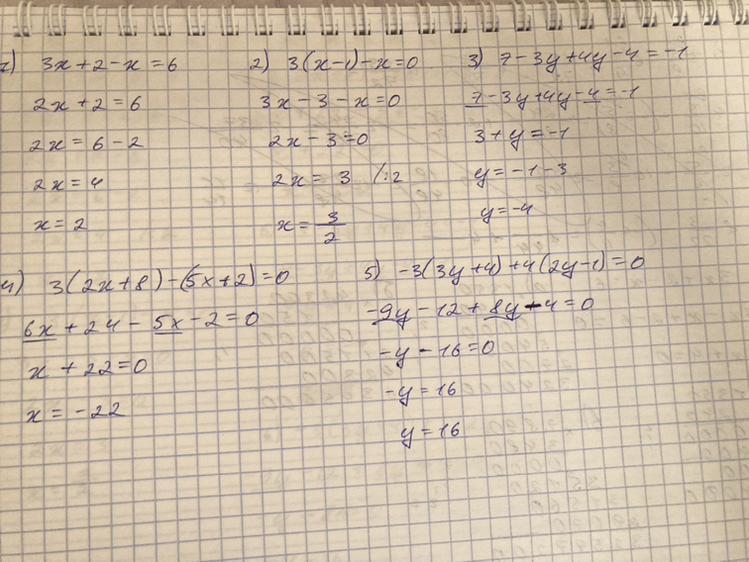 1) 3x+2-x=6
2x+2=6
2x=6-2
2x=4
x=2
2) 3(x-1)-x=0
3x-3-x=0
2x-3=0
2x=3 /:2
x=3/2
3) 7-3y+4y-4=-1
7-3y+4y-4=-1
3+y=-1
y=-1-3
y=-4
4) 3(2x+8)-(5x+2)=0
6x+24-5x-2=0
x+22=0
x=-22
5) -3(3y+4)+4(2y-1)=0
-9y-12+8y-4=0
-y-16=0
-y=16
y=16